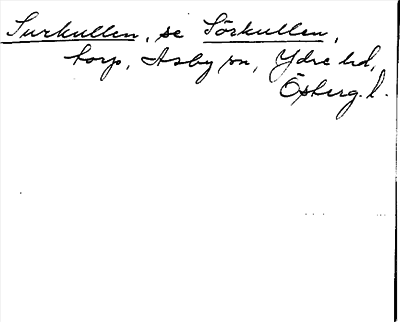 Surkullen, se Sörkullen,
torp, Asby sn, Ydre hd,
Östergl.